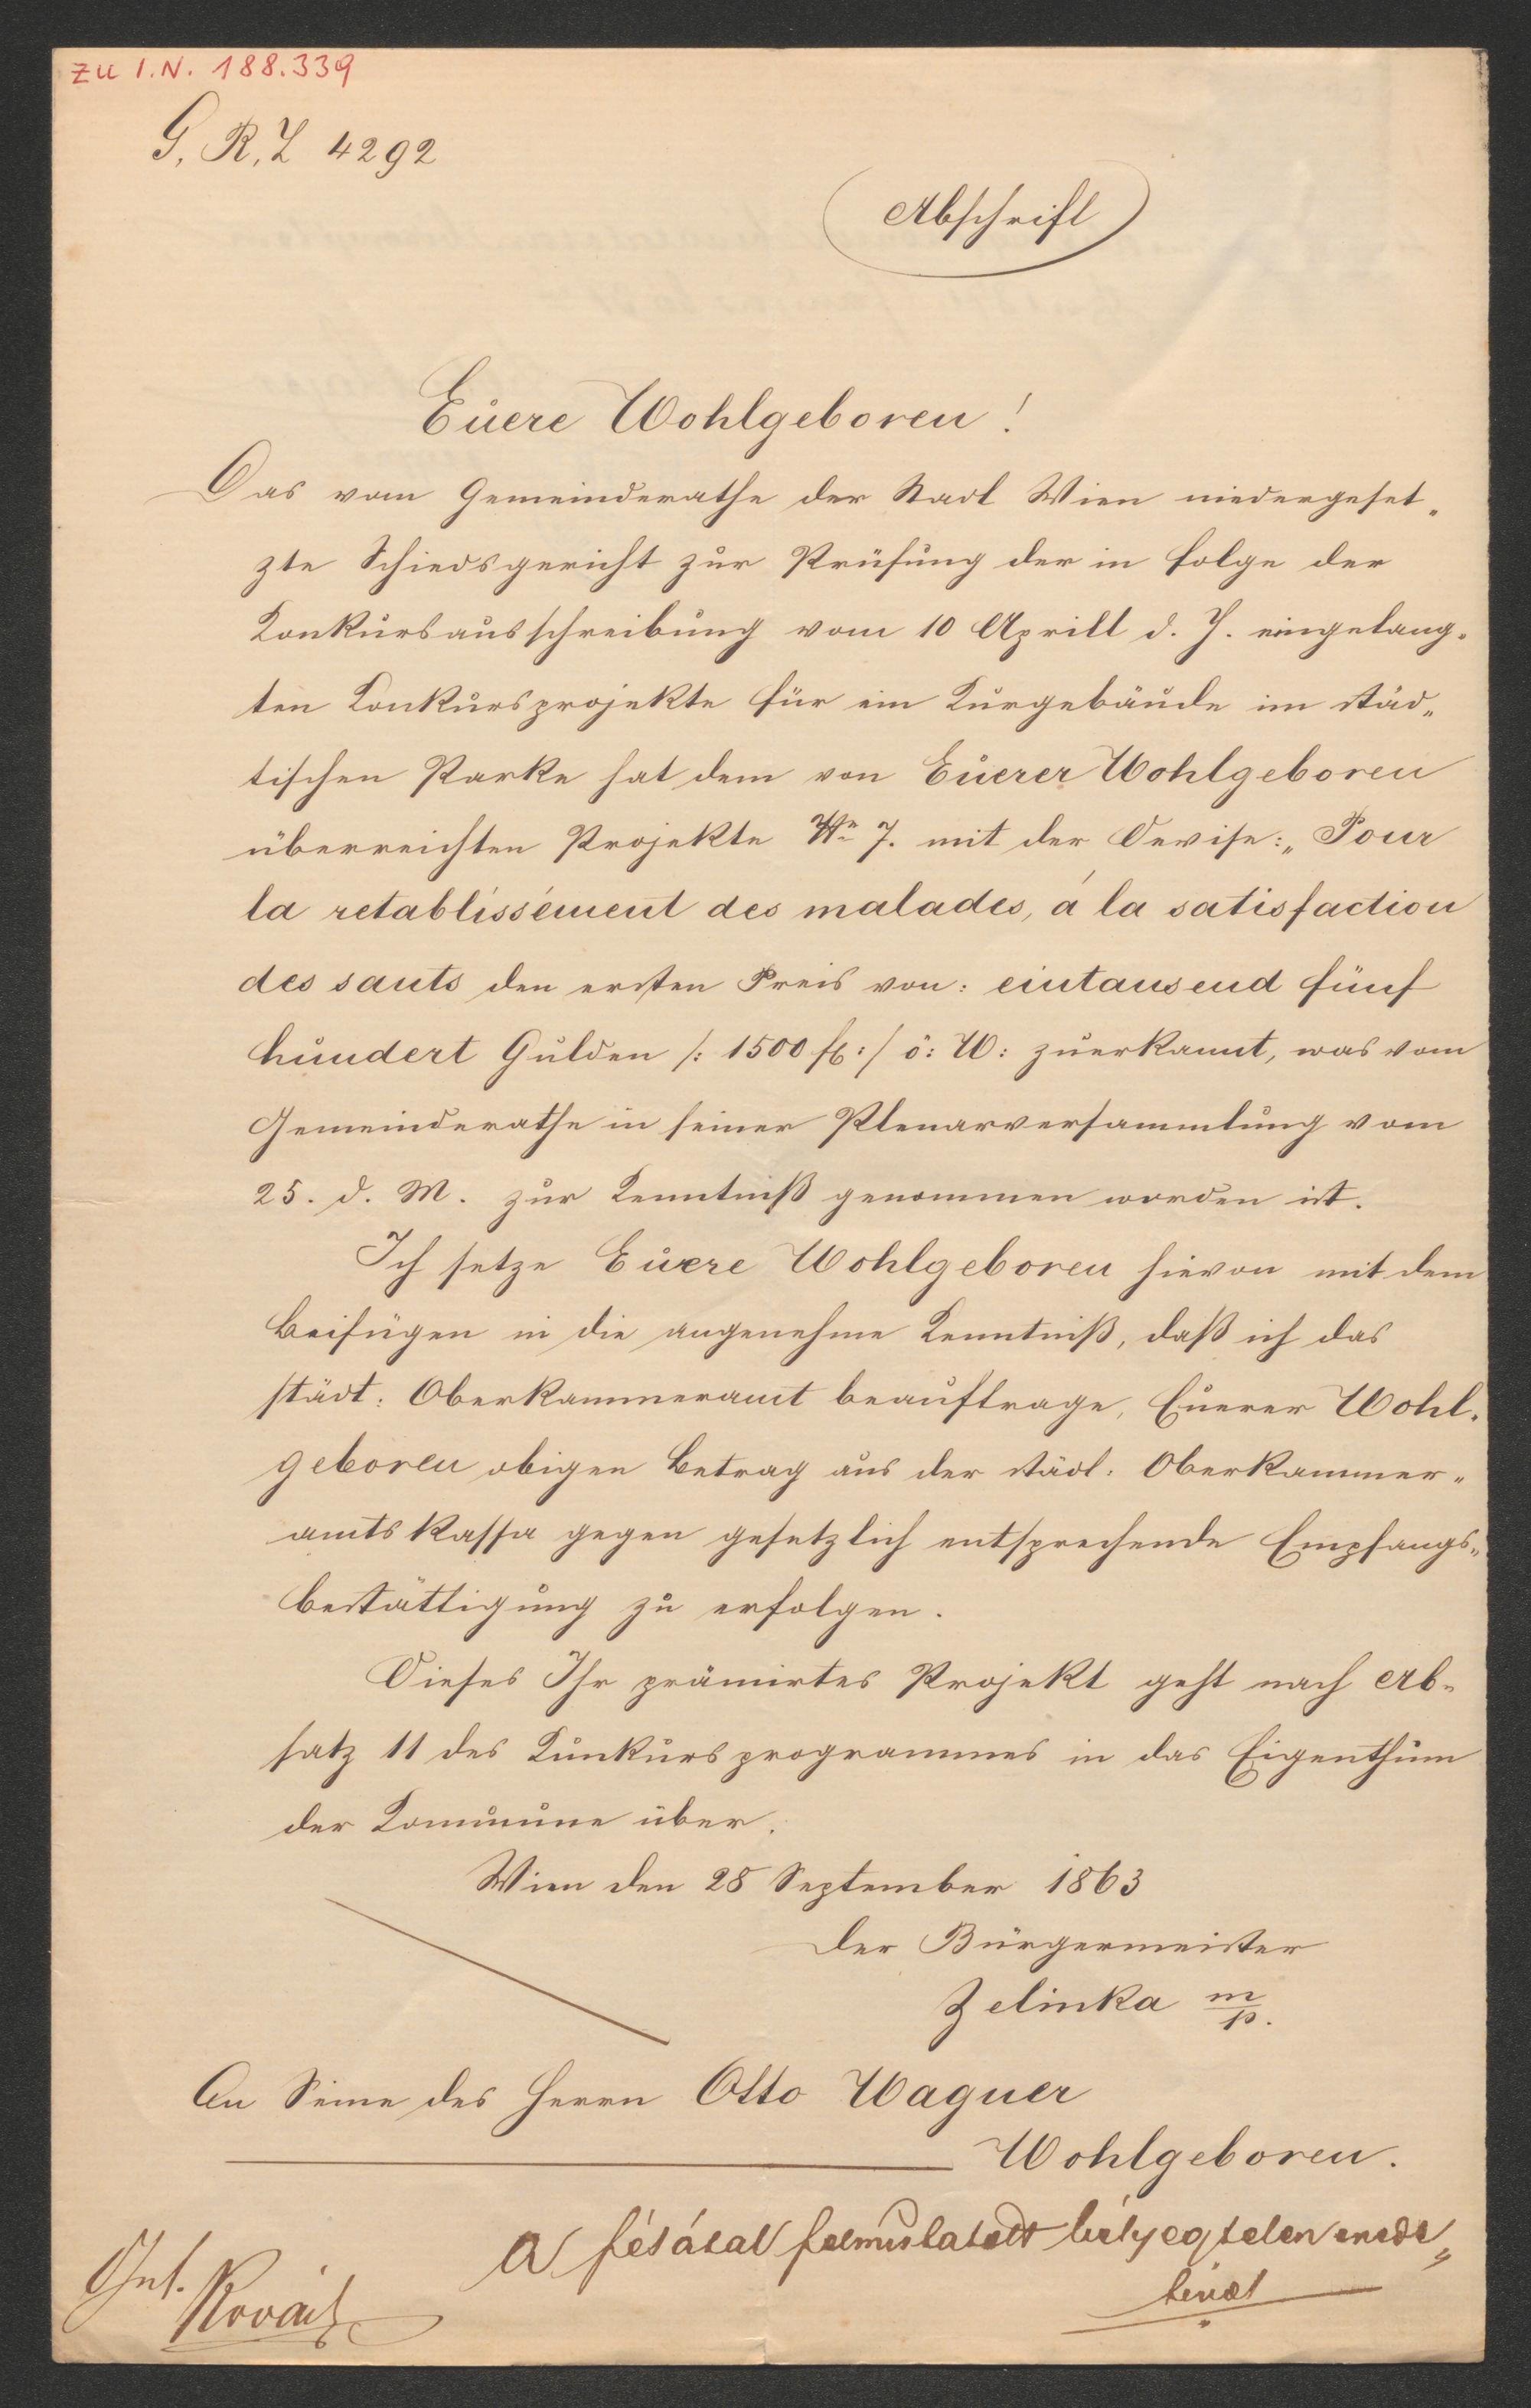 zu I.N. 188.339
G. R. Z 4292
Abschrift
Euere Wohlgeboren!
Das vom Gemeinderathe der Stadt Wien niedergeset„
zte Schiedsgericht zur Prüfung der in Folge der
Konkursausschreibung vom 10 Aprill d. J. eingelang„
ten Konkursprojekte für ein Kurgebäude im städ„
tischen Parke hat dem von Euerer Wohlgeboren
überreichten Projekte No 7. mit der Devise: „Pour
la retablissément des malades, á la satisfaction
des sauts den ersten Preis von: eintausend fünf
hundert Gulden /: 1500 fl :/ ö: W: zuerkannt, was vom
Gemeinderathe in seiner Plenarversammlung vom
25. d. M. zur Kenntniß genommen worden ist.
Ich setze Euere Wohlgeboren hievon mit dem
Beifügen in die angenehme Kenntniß, daß ich das
städt: Oberkammeramt beauftrage, Euerer Wohl„
geboren obigen Betrag aus der städt: Oberkammer„
amtskassa gegen gesetzlich entsprechende Empfangs„
bestättigung zu erfolgen.
Dieses Ihr prämirtes Projekt geht nach Ab„
satz 11 des Kunkursprogrammes in das Eigenthum
der Kommune über.
Wien den 28 September 1863
Der Bürgermeister
Zelinka m/p.
An Seine des Herrn Otto Wagner
Wohlgeboren.
A felmutatott bélyegtelen erede„
tivel